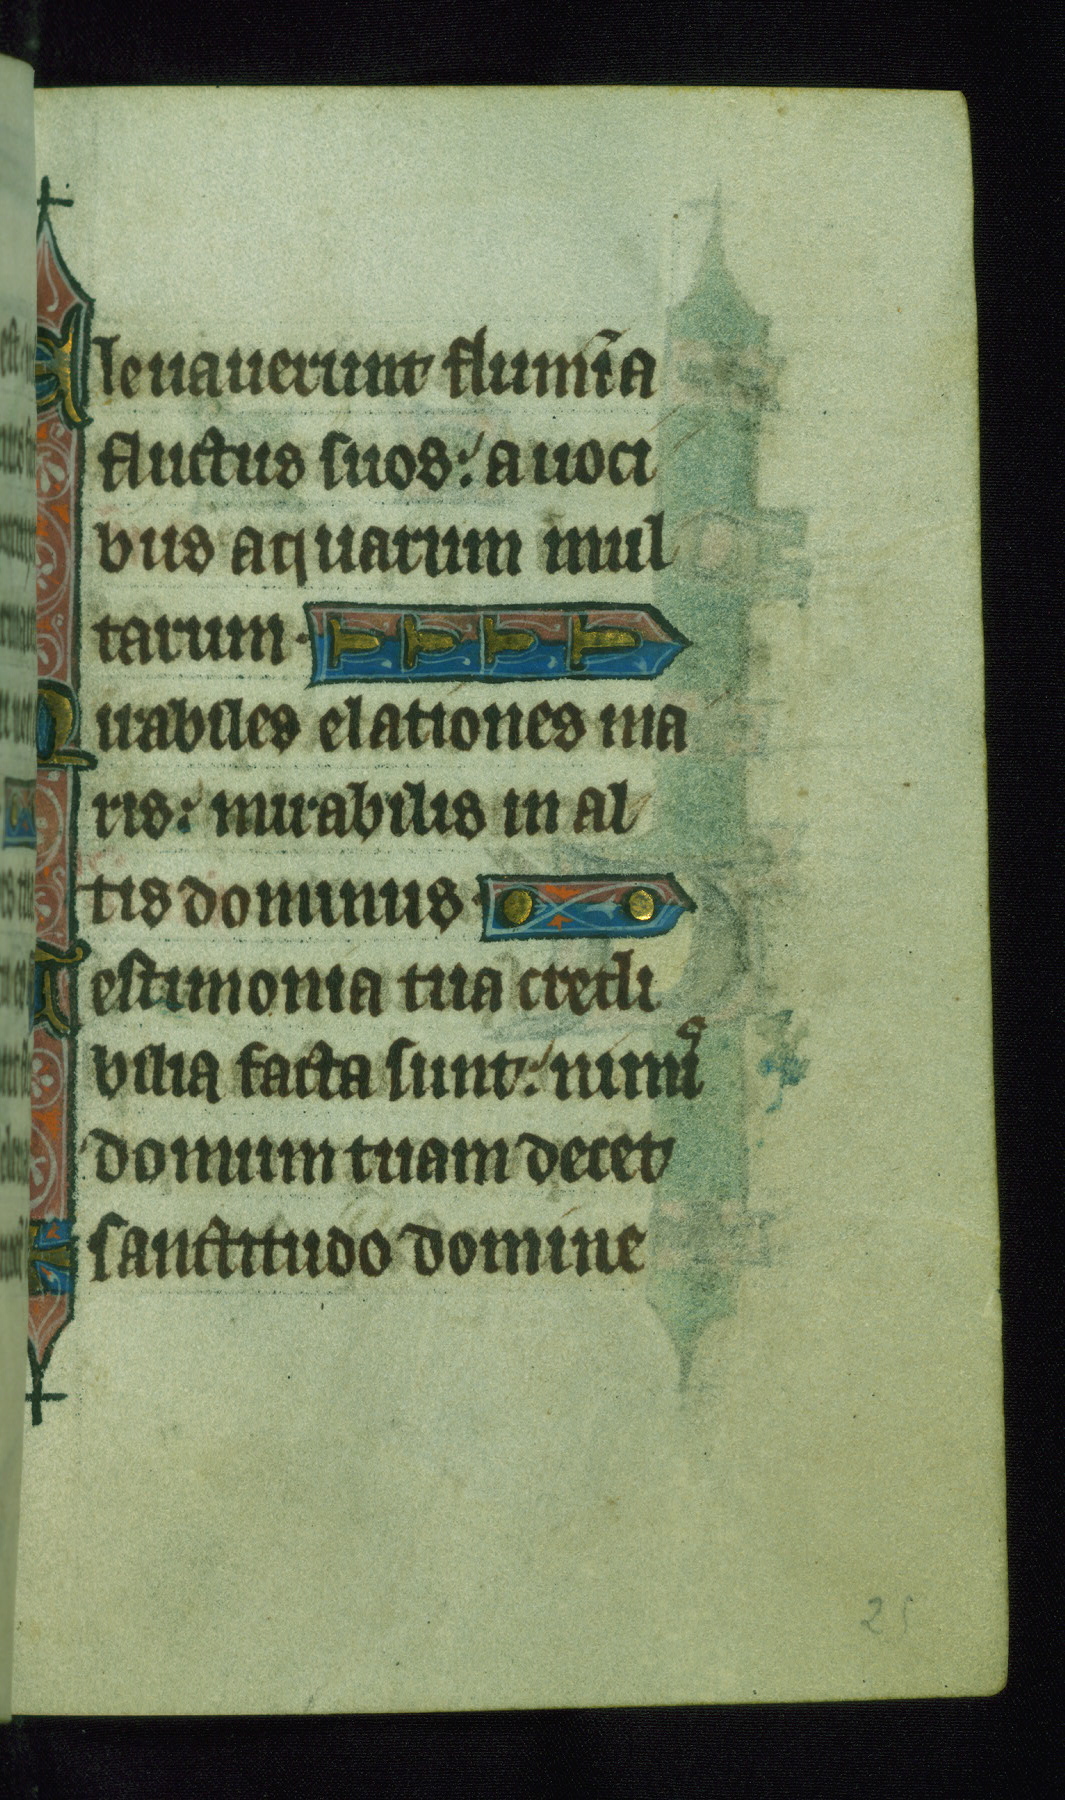 Eleuauerunt flumīa
fluctus suos: a uoci
bus aquarum mul
tarum.
Mirabiles elationes ma
ris: mirabilis in al
tis dominus.
Testimonia tua credi
bilia facta sunt: nimis
domum tuam decet
sanctitudo domine
25